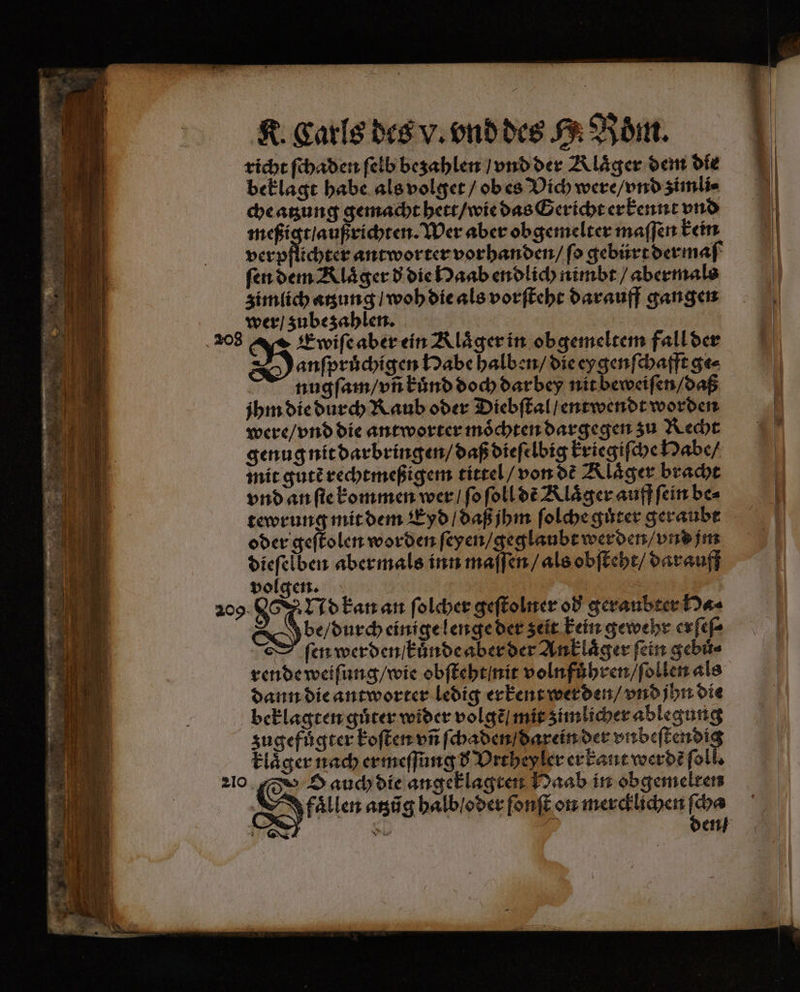 K. Carls des v. vnd des H. Rȯm.
richt ſchaden ſelb bezahlen / vnd der Klaͤger dem die
beklagt habe als volget / ob es Vich were / vnd zimli⸗
che atzung gemacht hett / wie das Gericht erkennt vnd
meßigt / außrichten. Wer aber obgemelter maſſen kein
verpflichter antworter vorhanden / ſo gebürt dermaſ
ſen dem Klaͤger d̕ die Haab endlich nimbt / abermals
zimlich atzung / woh die als vorſteht darauff gangen
wer / zubezahlen.
208 Ewiſe aber ein Klaͤger in obgemeltem fall der
anſpruͤchigen Habe halben / die eygenſchafft ge⸗
nugſam / vñ kuͤnd doch darbey nit beweiſen / daß
jhm die durch Raub oder Diebſtal / entwendt worden
were / vnd die antworter moͤchten dargegen zu Recht
genug nit darbringen / daß dieſelbig kriegiſche Habe /
mit gutẽ rechtmeßigem tittel / von dẽ Klaͤger bracht
vnd an ſie kommen wer / ſo ſoll dẽ Klaͤger auff ſein be⸗
tewrung mit dem Eyd / daß jhm ſolche guͤter geraubt
oder geſtolen worden ſeyen / geglaubt werden / vnd jm
dieſelben abermals inn maſſen / als obſteht / darauff
volgen.
209 VNd kan an ſolcher geſtolner od̕ geraubter Ha⸗
be / durch einige lenge der zeit kein gewehr erſeſ⸗
ſen werden / kuͤnde aber der Anklaͤger ſein gebuͤ⸗
rende weiſung / wie obſteht / nit volnfuͤhren / ſollen als
dann die antworter ledig erkent werden / vnd jhn die
beklagten guͤter wider volgẽ / mit zimlicher ablegung
zugefuͤgter koſten vñ ſchaden / darein der vnbeſtendig
klaͤger nach ermeſſung d̕ Vrtheyler erkant werdẽ ſoll.
210 SO auch die angeklagten Haab in obgemelten
faͤllen atzũg halb / oder ſonſt on mercklichen ſcha
den /